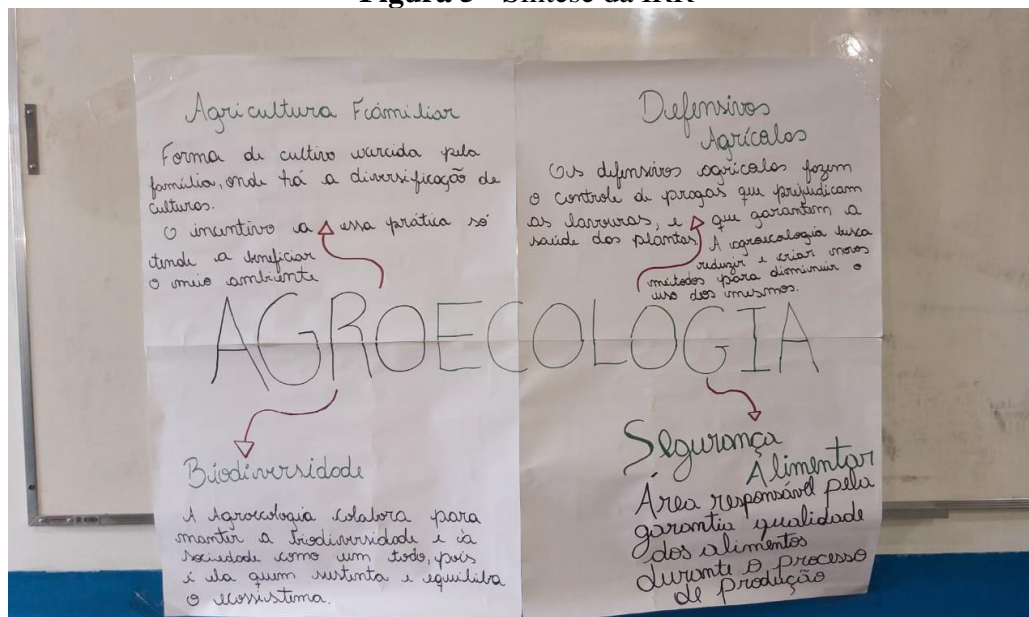 Agricultura Familiar
Forma de cultivo exercida pela
família, onde há a diversificação de
culturas.
O incentivo a essa prática só
tende a beneficiar
o meio ambiente
Defensivos
Agrícolas
Os defensivos agrícolas fazem
o controle de pragas que prejudicam
as lavouras, e que garantem a
saúde das plantas
A agroecologia busca
reduzir e criar novos
métodos para diminuir o
uso dos mesmos.
AGROECOLOGIA
Biodiversidade
A Agroecologia colabora para
manter a biodiversidade e a
sociedade como um todo, pois
é ela quem sustenta e equiliba
o ecossistema.
Segurança
Alimentar
Área responsável pela
garantia qualidade
dos alimentos
durante o processo
de produção